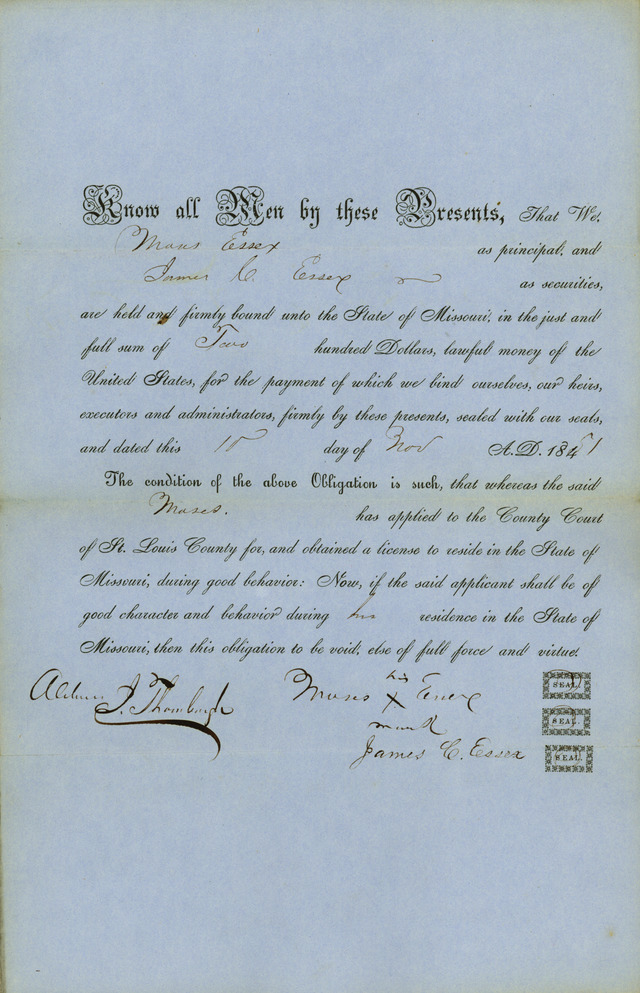 Know all Men by these Presents, That We,
Moses Essex as principal, and
James C. Essex as securities,
are held and firmly bound unto the State of Missouri, in the just and
full sum of Two hundred Dollars, lawful money of the
United States, for the payment of which we bind ourselves, our heirs,
executors and administrators, firmly by these presents, sealed with our seals,
and dated this day of Nov A.D. 18
The condition of the above Obligation is such, that whereas the said
Moses. has applied to the County Court
of St. Louis County for, and obtained a license to reside in the State of
Missouri, during good behavior: Now, if the said applicant shall be of
good character and behavior during his residence in the State of
Missouri, then this obligation to be void, else of full force and virtue.
his
J. Thornburgh Moses X Essex SEAL.
mark SEAL.
James C. Essex SEAL.